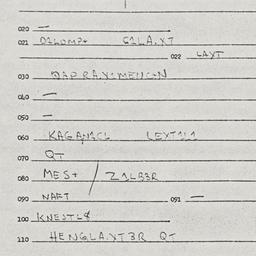 020 —
021 O1LOMP+ G1LA.XT
022 LAYT
030 DAP RA.Y1MEN1N
040 —
050 —
060 KAGAN1CL LEYT1L1
070 QT
080 MES+ / Z1LB3R
090 NAFT 091 —
100 KNEJTL$
110 HENGLA.YT3R QT